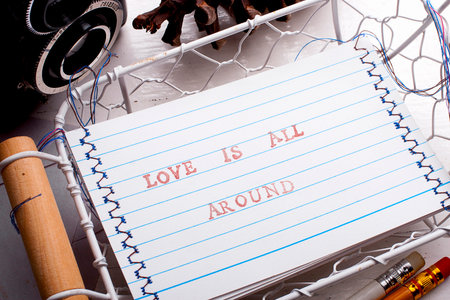 LOVE IS ALL
AROUND